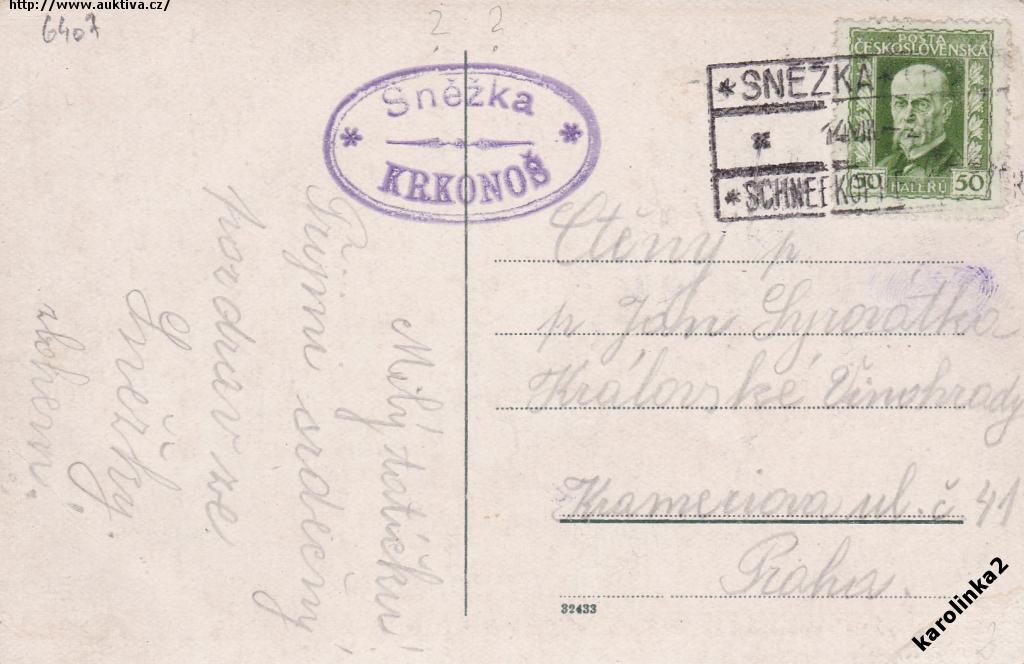 http://www.auktiva.cz/
6407
2 2
Sněžka
* *
KRKONOŠ
*SNĚŽKA*
14 VIII
*SCHNEEKOPPE
POŠTA
ČESKOSLOVENSKÁ
50 HALÉŘŮ 50
Milý tatíčku!
Přijmi srdečný
pozdrav ze
Sněžky
Ctěný p.
p. Jan Syrovátka
Královské Vinohrady
Krameriova ul. č 41
Praha.
32433
karolinka2